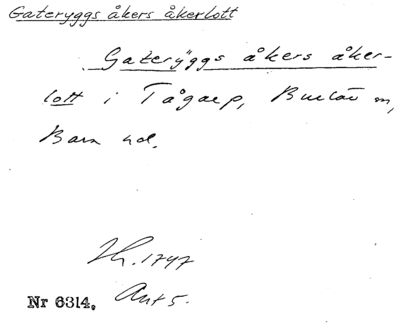 Gateryggs åkers åkerlott
Gateryggs åkers åker-
lott i Tågarp, Burlöv sn,
Bara hd.
Lh. 1747
Akt 5.
Nr 6314.